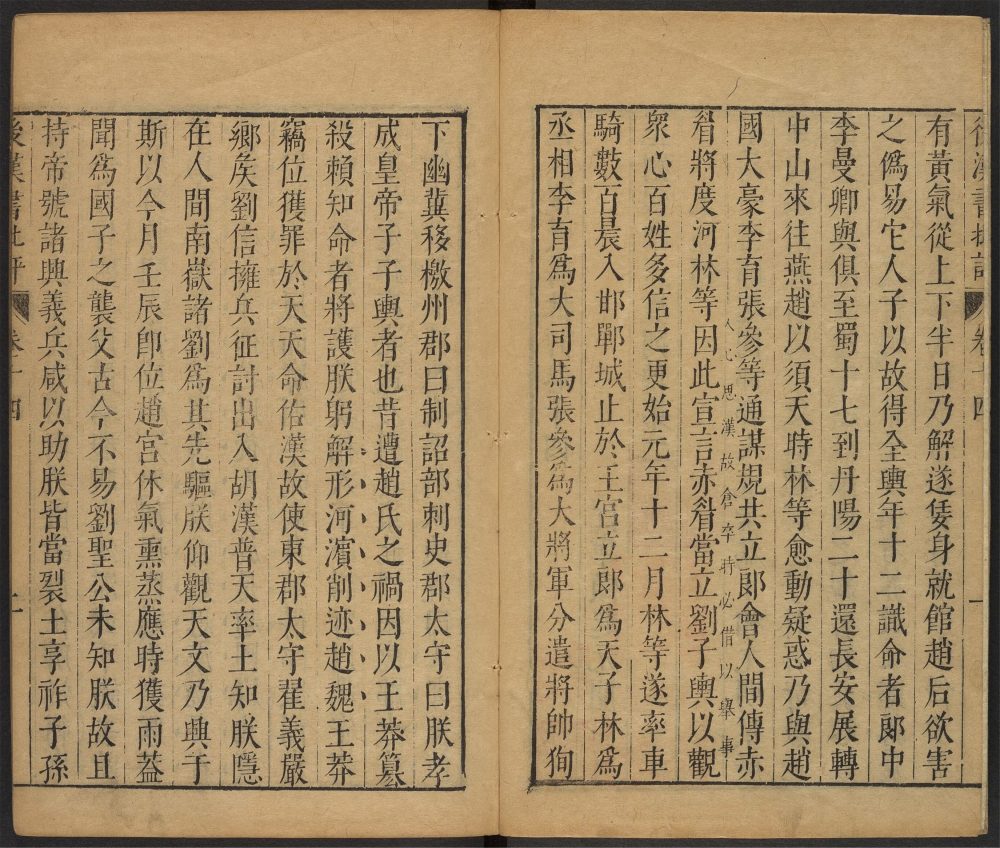 後漢書批評 卷十四 一
有黃氣從上下半日乃解遂𡛸身就館趙后欲害
之僞易它人子以故得全輿年十二識命者郎中
李曼卿與俱至蜀十七到丹陽二十還長安展轉
中山來往燕趙以須天時林等愈動疑惑乃與趙
國大豪李育張參等通謀規共立郎會人間傳赤
人心思漢故倉卒時必借以舉事
眉將度河林等因此宣言赤眉當立劉子輿以觀
衆心百姓多信之更始元年十二月林等遂率車
騎數百晨入邯鄲城止於王宮立郎爲天子林爲
丞相李育爲大司馬張參爲大將軍分遣將帥徇
下幽冀移檄州郡曰制詔部刺史郡太守曰朕孝
成皇帝子子輿者也昔遭趙氏之禍因以王莽篡
殺賴知命者將護朕躬解形河濱削迹趙魏王莽
竊位獲罪於天天命佑漢故使東郡太守翟義嚴
鄉矦劉信擁兵征討出入胡漢普天率土知朕隱
在人間南嶽諸劉爲其先驅朕仰觀天文乃興于
斯以今月壬辰卽位趙宮休氣熏蒸應時獲雨葢
聞爲國子之襲父古今不易劉聖公未知朕故且
持帝號諸興義兵咸以助朕皆當裂土享祚子孫
後漢書批評 卷十四 二